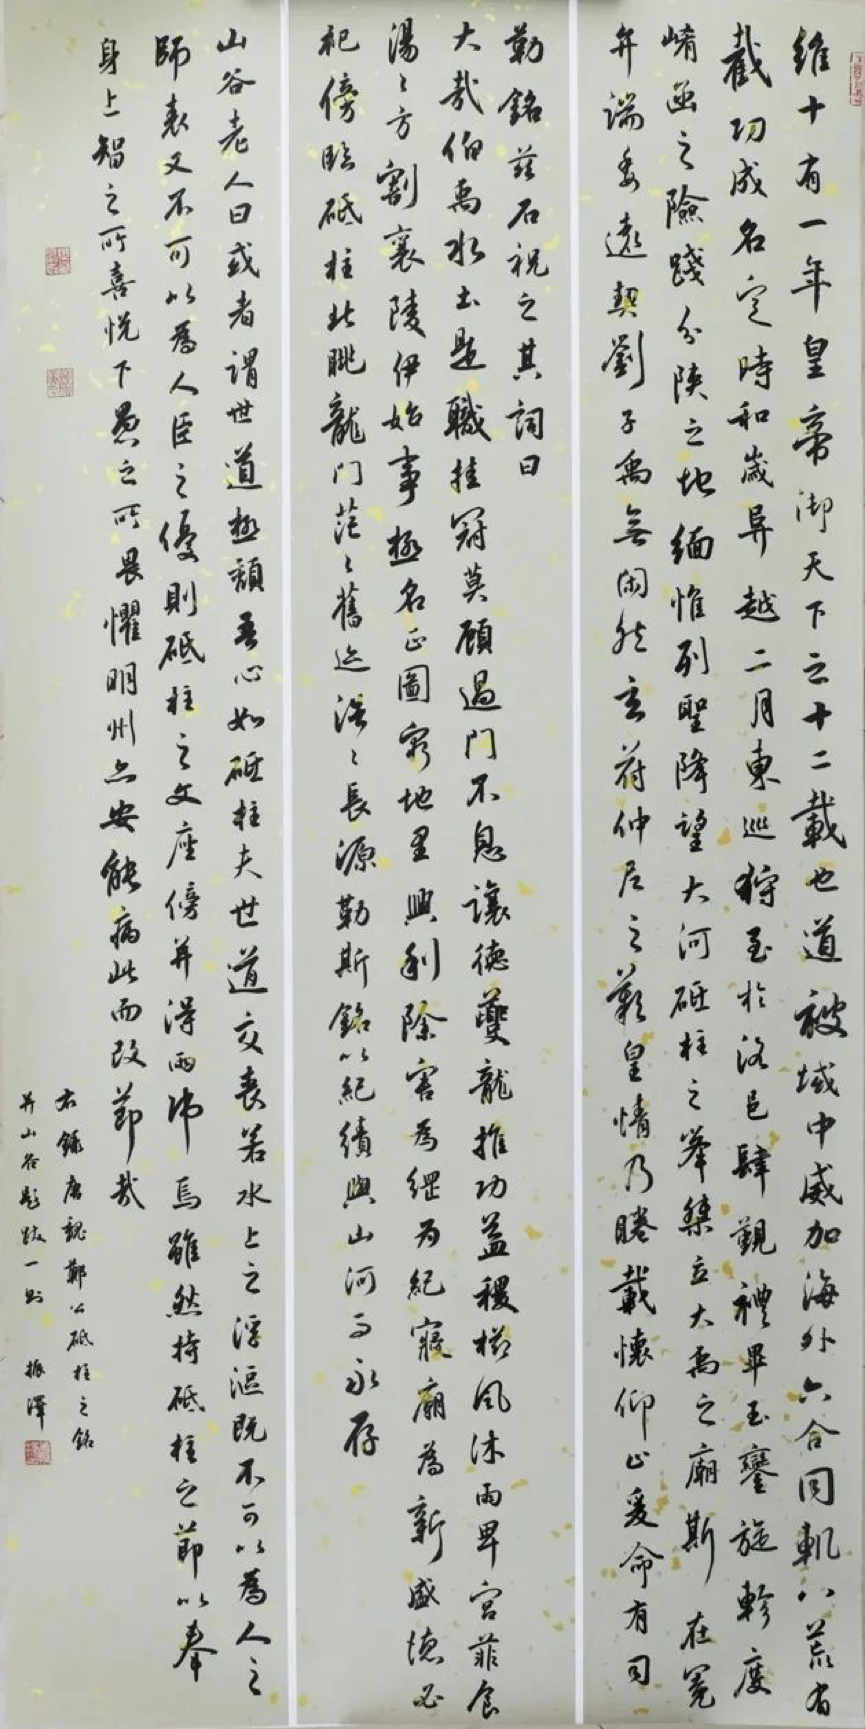 維十有一年皇帝御天下之十二載也道被域中威加海外六合同軌八荒有
截功成名定時和歲阜越二月東巡狩至於洛邑肆覲禮畢玉鑾旋軫度
崤函之險踐分陝之地緬惟列聖降望大河砥柱之峯桀立大禹之廟斯在冕
弁端委遠契劉子禹無閒然玄符仲尼之歎皇情乃睠載懷仰止爰命有司
勒銘茲石祝之其詞曰
大哉伯禹水土是職挂冠莫顧過門不息讓德夔龍推功益稷櫛風沐雨卑宮菲食
湯〻方割襄陵伊始事極名正圖窮地里興利除害為綱為紀寢廟為新盛德必
祀傍臨砥柱北眺龍門茫〻舊迹浩〻長源勒斯銘以紀績與山河而永存
山谷老人曰或者謂世道極頹吾心如砥柱夫世道交喪若水上之浮漚既不可以為人之
師表又不可以為人臣之優則砥柱之文座傍并得兩師焉雖然持砥柱之節以奉
身上智之所喜悅下愚之所畏懼明州亦安能病此而改節哉
右錄唐魏鄭公砥柱之銘
并山谷題跋一則 振澤